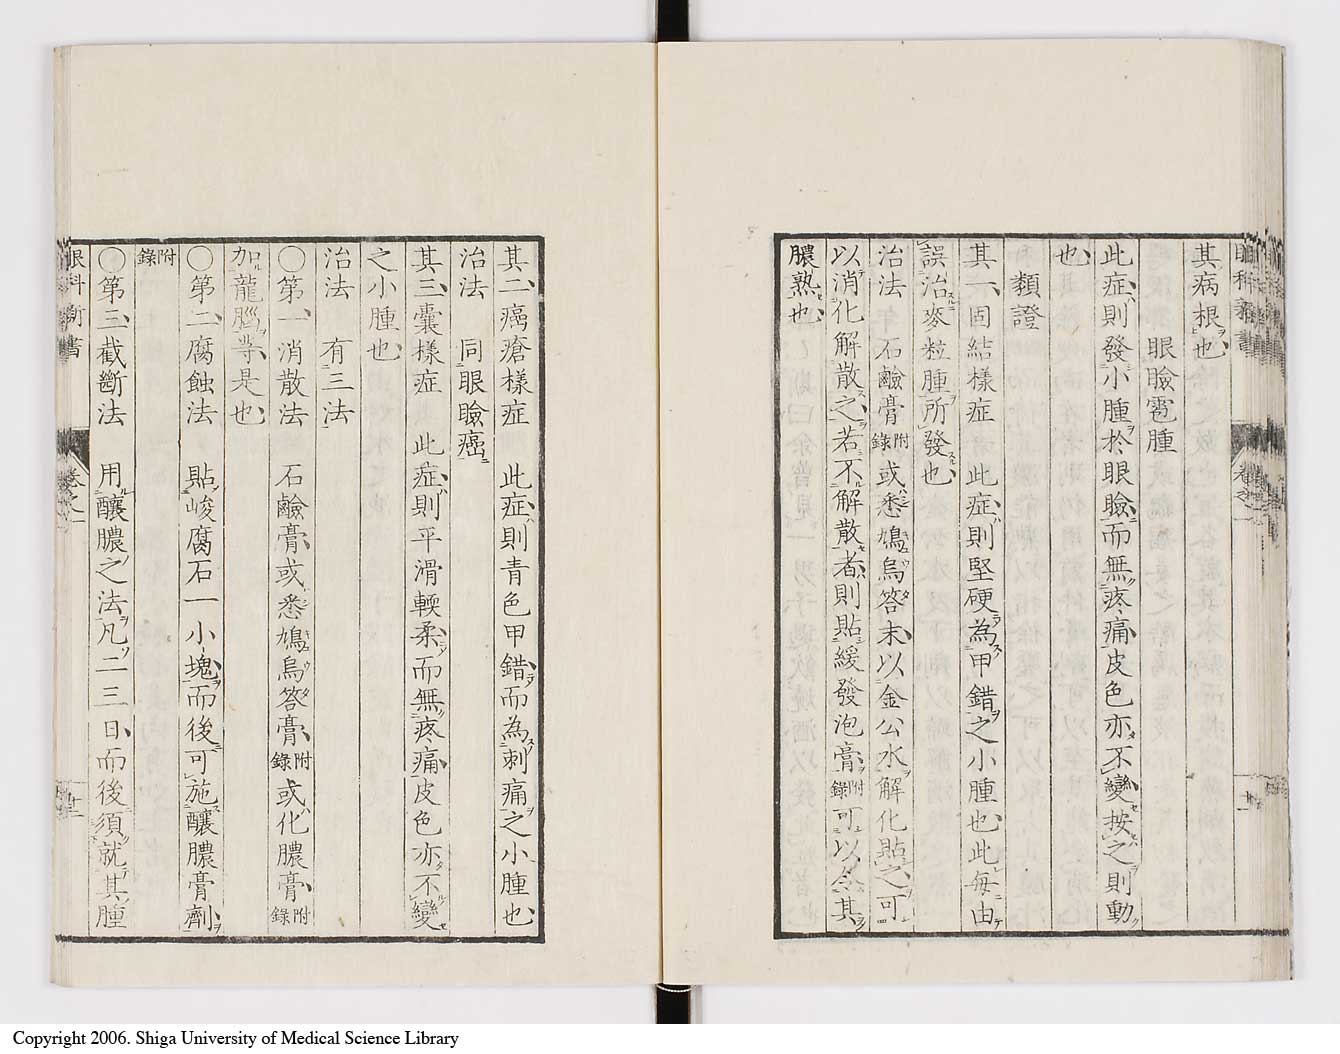 其病根也
眼瞼雹腫
此症則發小腫於眼瞼而無疼痛皮色亦不變按之則動
也
類證
其一固結樣症 此症則堅硬為甲錯之小腫也此每由
誤治麥粒腫所發也
治法 石鹼膏附錄或悉鳩烏答末以金公水解化貼之可
以消化解散之若不解散者則貼緩發泡膏附錄可以令其
膿熟也
其二癌瘡樣症 此症則青色甲錯而為刺痛之小腫也
治法 同眼瞼癌
其三囊樣症 此症則平滑輭柔而無疼痛皮色亦不變
之小腫也
治法 有三法
○第一消散法 石鹼膏或悉鳩烏答膏附錄或化膿膏附錄
加龍腦等是也
○第二腐蝕法 貼峻腐石一小塊而後可施釀膿膏劑
附錄
○第三截斷法 用釀膿之法凡二三日而後須就其腫
眼科新書
卷之一
十一
Copyright 2006. Shiga University of Medical Science Library